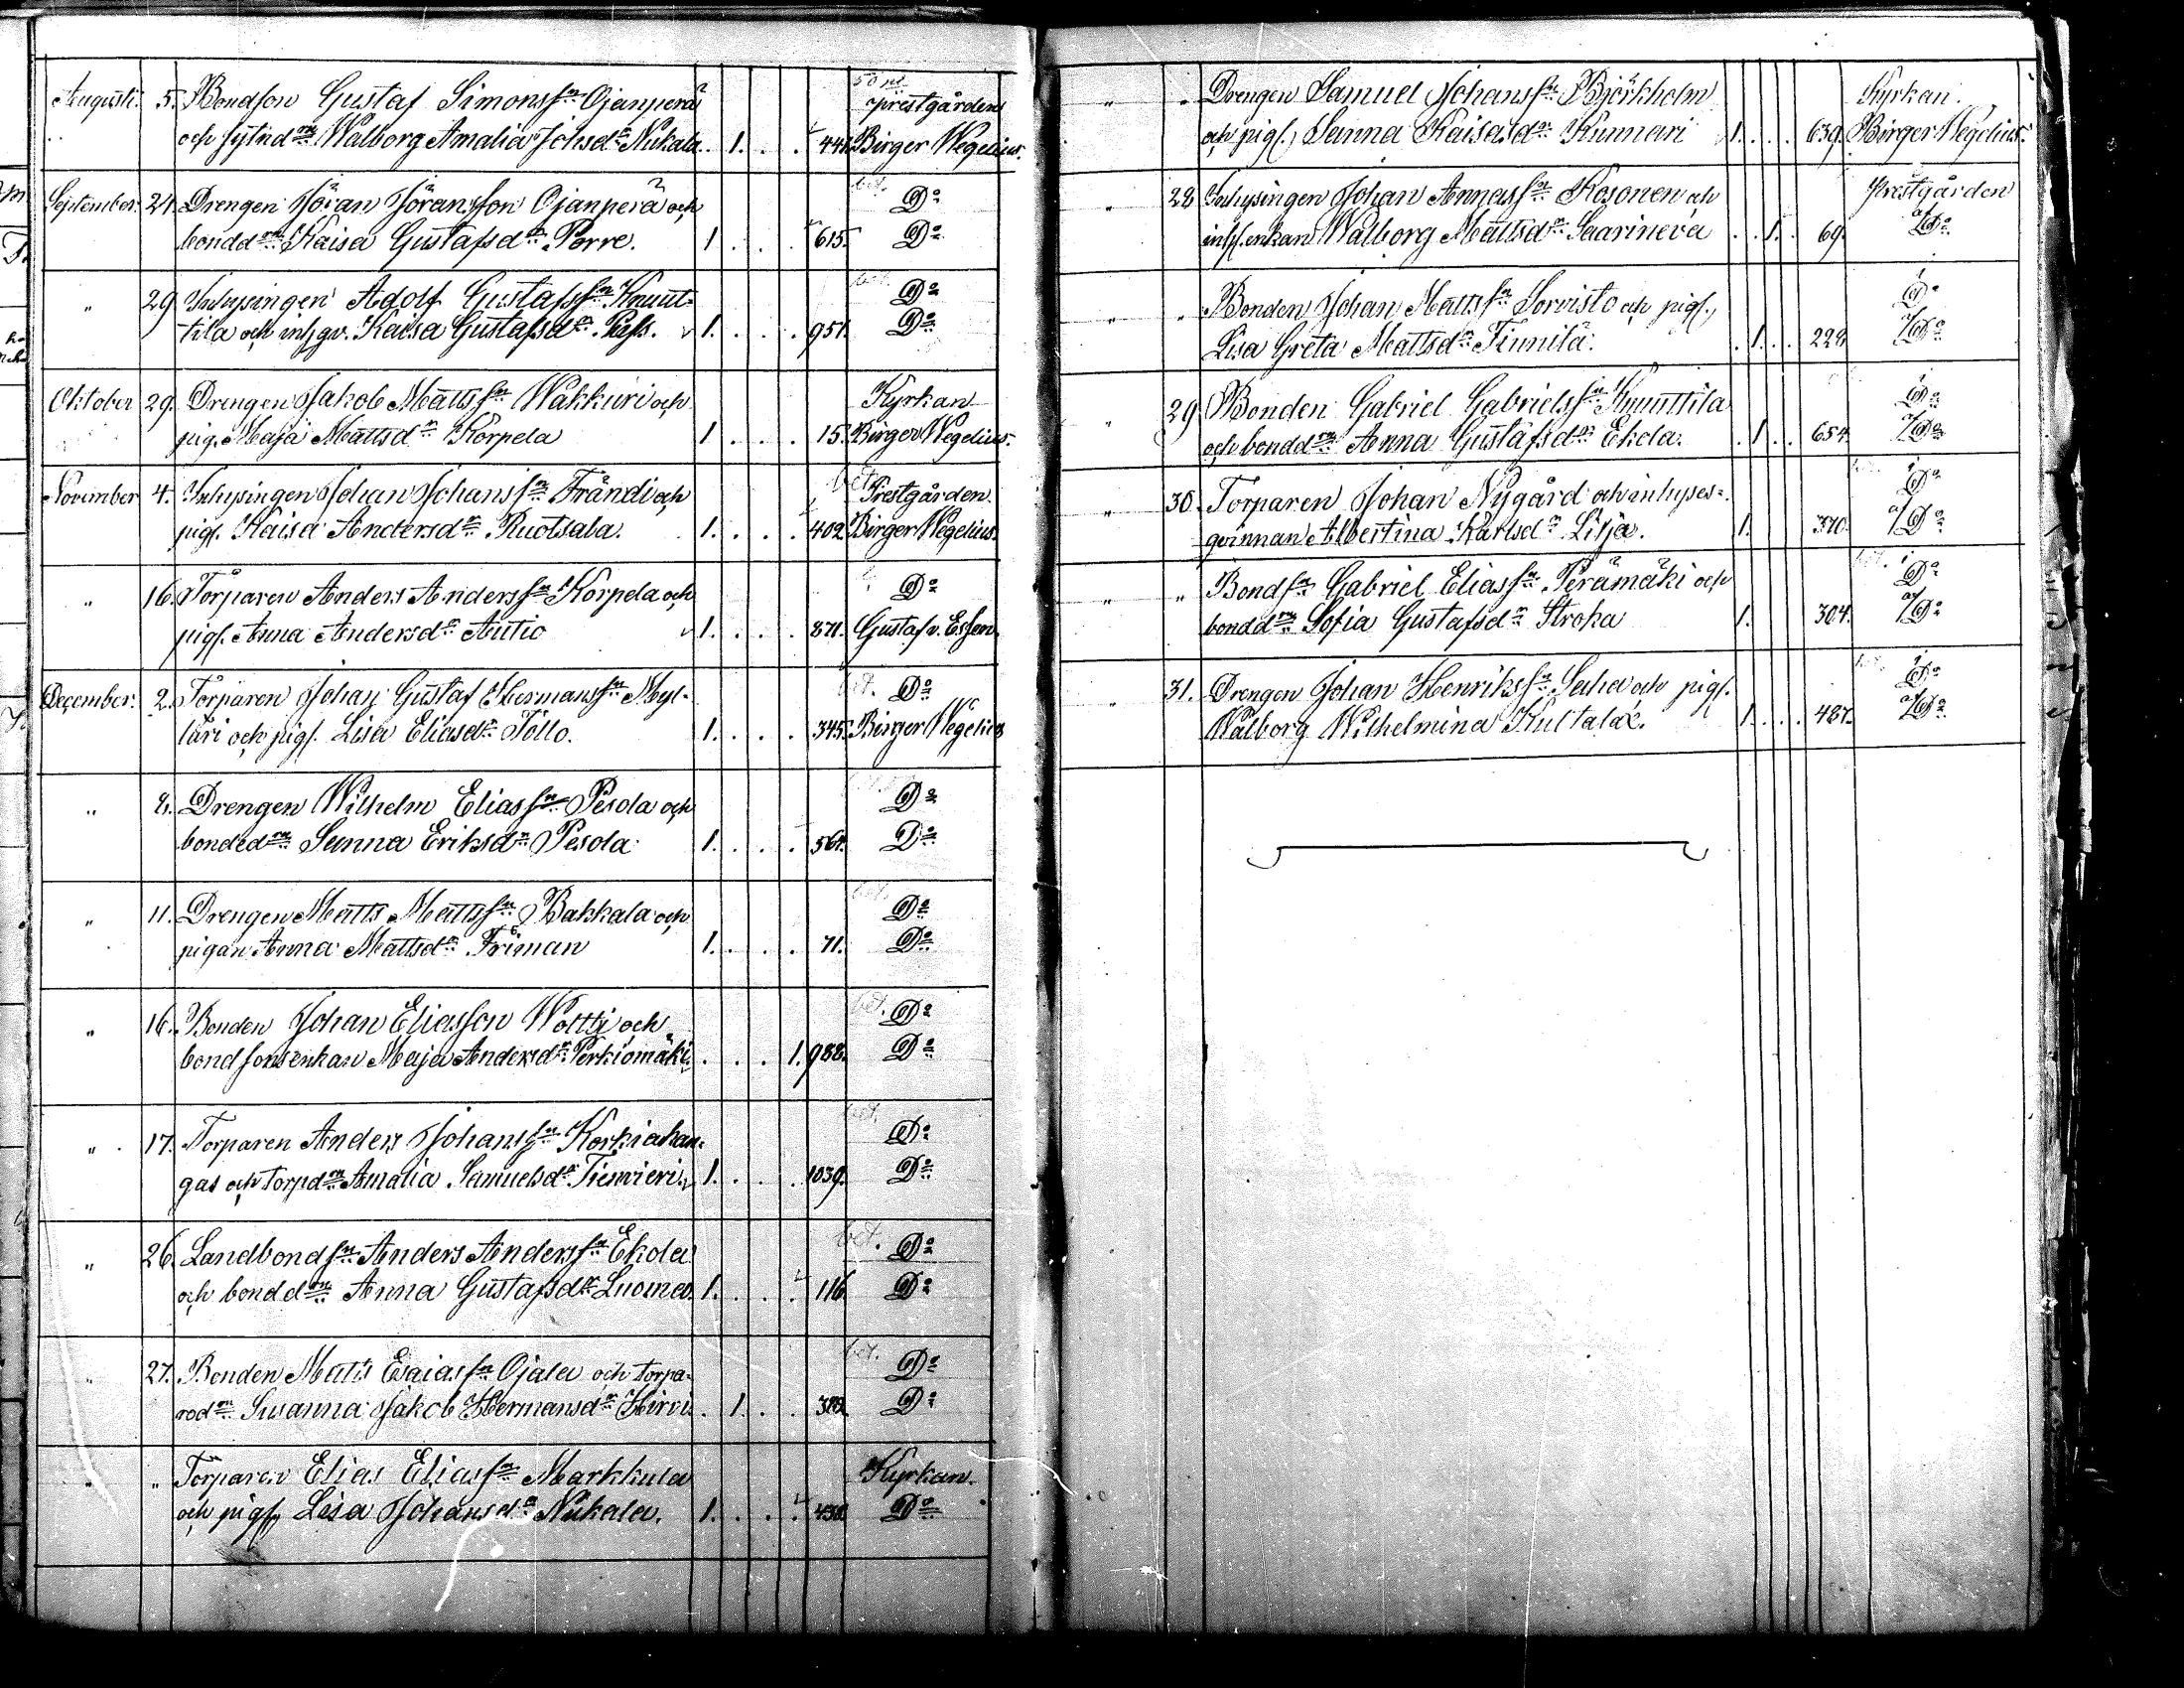 50 pi
Augusti. 5. Bondson Gustaf Simonss:n Ojanperä prestgården
och sytnd:rn Walborg Amalia Johsd:r Nukala. 1. . . . 441. Birger Wegelius.
bet.
September. 24. Drengen Jöran Jöransson Ojanperä och D:o
bondd:rn Kaisa Gustafsd:r Porre. 1 . . . . 615. D:o
bet.
" 29 Inhysingen Adolf Gustafss:n Knuut- D:o
tila och inh.gv. Kaisa Gustafsd:r Puss. 1. . . . . 951. D:o
Oktober 29. Drengen Jakob Mattss:n Wakkuri och Kyrkan
pig. Maja Mattsd:r Korpela 1 . . . . 15. Birger Wegelius.
bet.
November 4. Inhysingen Johan Johanss:n Frändi och Prestgården.
pigs. Kaisa Andersd:r Ruotsala. 1. . . . . 402. Birger Wegelius.
" 16. Torparen Anders Anderss:n Korpela och D:o
pigs. Anna Andersd:r Autio 1. . . . . 871. Gustaf v. Essen.
bet.
December. 2. Torparen Johan Gustaf Hermanss:n Myl- D:o
läri och pigs. Lisa Eliasd:r Töllo. 1. . . . . 345. Birger Wegelius
" 8. Drengen Wilhelm Eliass:n Pesola och D:o
bonded:rn Sanna Eriksd:r Pesola 1. . . . . 561. D:o
bet.
" 11. Drengen Matts Mattss:n Bakkala och D:o
pigan Anna Mattsd:r Friman 1. . . . . 71. D:o
bet.
" 16. Bonden Johan Eliasson Woltti och D:o
bondsonsenkan Maja Andersd:r Perkiömäki. . . . . 1. 988. D:o
bet.
" 17. Torparen Anders Johanss:n Korkiakan- D:o
gas och torpd:rn Amalia Samuelsd:r Tienvieri. 1. . . . . 1039. D:o
bet.
" 26. Landbonds:n Anders Anderss:n Ekola D:o
och bondd:rn Anna Gustafsd:r Luoma. 1. . . . . 116. D:o
bet.
" 27. Bonden Matts Esaiass:n Ojala och torpa- D:o
red:rn Susanna Jakob Hermansd:r Hirvi. . 1. . . D:o
" " Torparen Elias Eliass:n Markkula Kyrkan.
och pigs. Lisa Johansd:r Nukala. 1. . . . . 438. D:o
" " Drengen Samuel Johanss:n Björkholm Kyrkan.
och pigs. Sanna Kaisasd:r Kunnari 1. . . . 639. Birger Wegelius.
" 28 Inhysingen Johan Annass:n Kosonen och Prestgården
inh.enkan Walborg Mattsd:r Saarineva . . 1. . 69. D:o
" " Bonden Johan Mattss:n Sorvisto och pigs. D:o
Lisa Greta Mattsd:r Finnilä. . 1. . . 229. D:o
" 29 Bonden Gabriel Gabrielss:n Knuuttila D:o
och bondd:rn Anna Gustafsd:r Ekola. . 1. . . 654. D:o
" 30. Torparen Johan Nygård och inhyses- D:o
qvinnan Albertina Karlsd:r Lilja. 1. 370. D:o
" " Bonds:n Gabriel Eliass:n Perämäki och D:o
bondd:rn Sofia Gustafsd:r Stroka 1. 304. D:o
" 31. Drengen Johan Henrikss:n Saha och pigs. D:o
Walborg Wilhelmina Kultala. 1. . . . 487. D:o